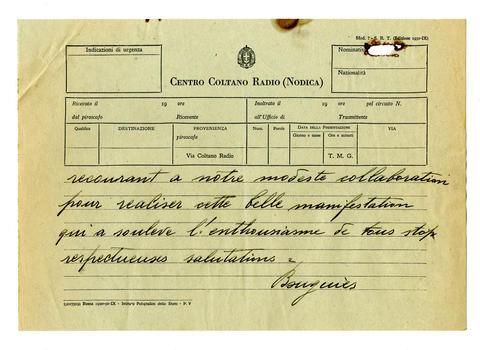 Mod. 7 - S. R. T. (Edizione 1931-IX)
Indicazioni di urgenza
Nominativo
Nazionalità
CENTRO COLTANO RADIO (NODICA)
Ricevuto il 19 ore
dal piroscafo Ricevente
Inoltrato il 19 ore pel circuito N.
all'Ufficio di Trasmittente
Qualifica DESTINAZIONE PROVENIENZA Num. Parole DATA DELLA PRESENTAZIONE VIA
piroscafo Giorno e mese Ore e minuti
Via Coltano Radio T. M. G.
recourant a notre modeste collaboration
pour realiser cette belle manifestation
qui a souleve l'enthousiasme de tous stop
respectueuses salutations =
Roma 1930-31-IX - Istituto Poligrafico dello Stato - P. V